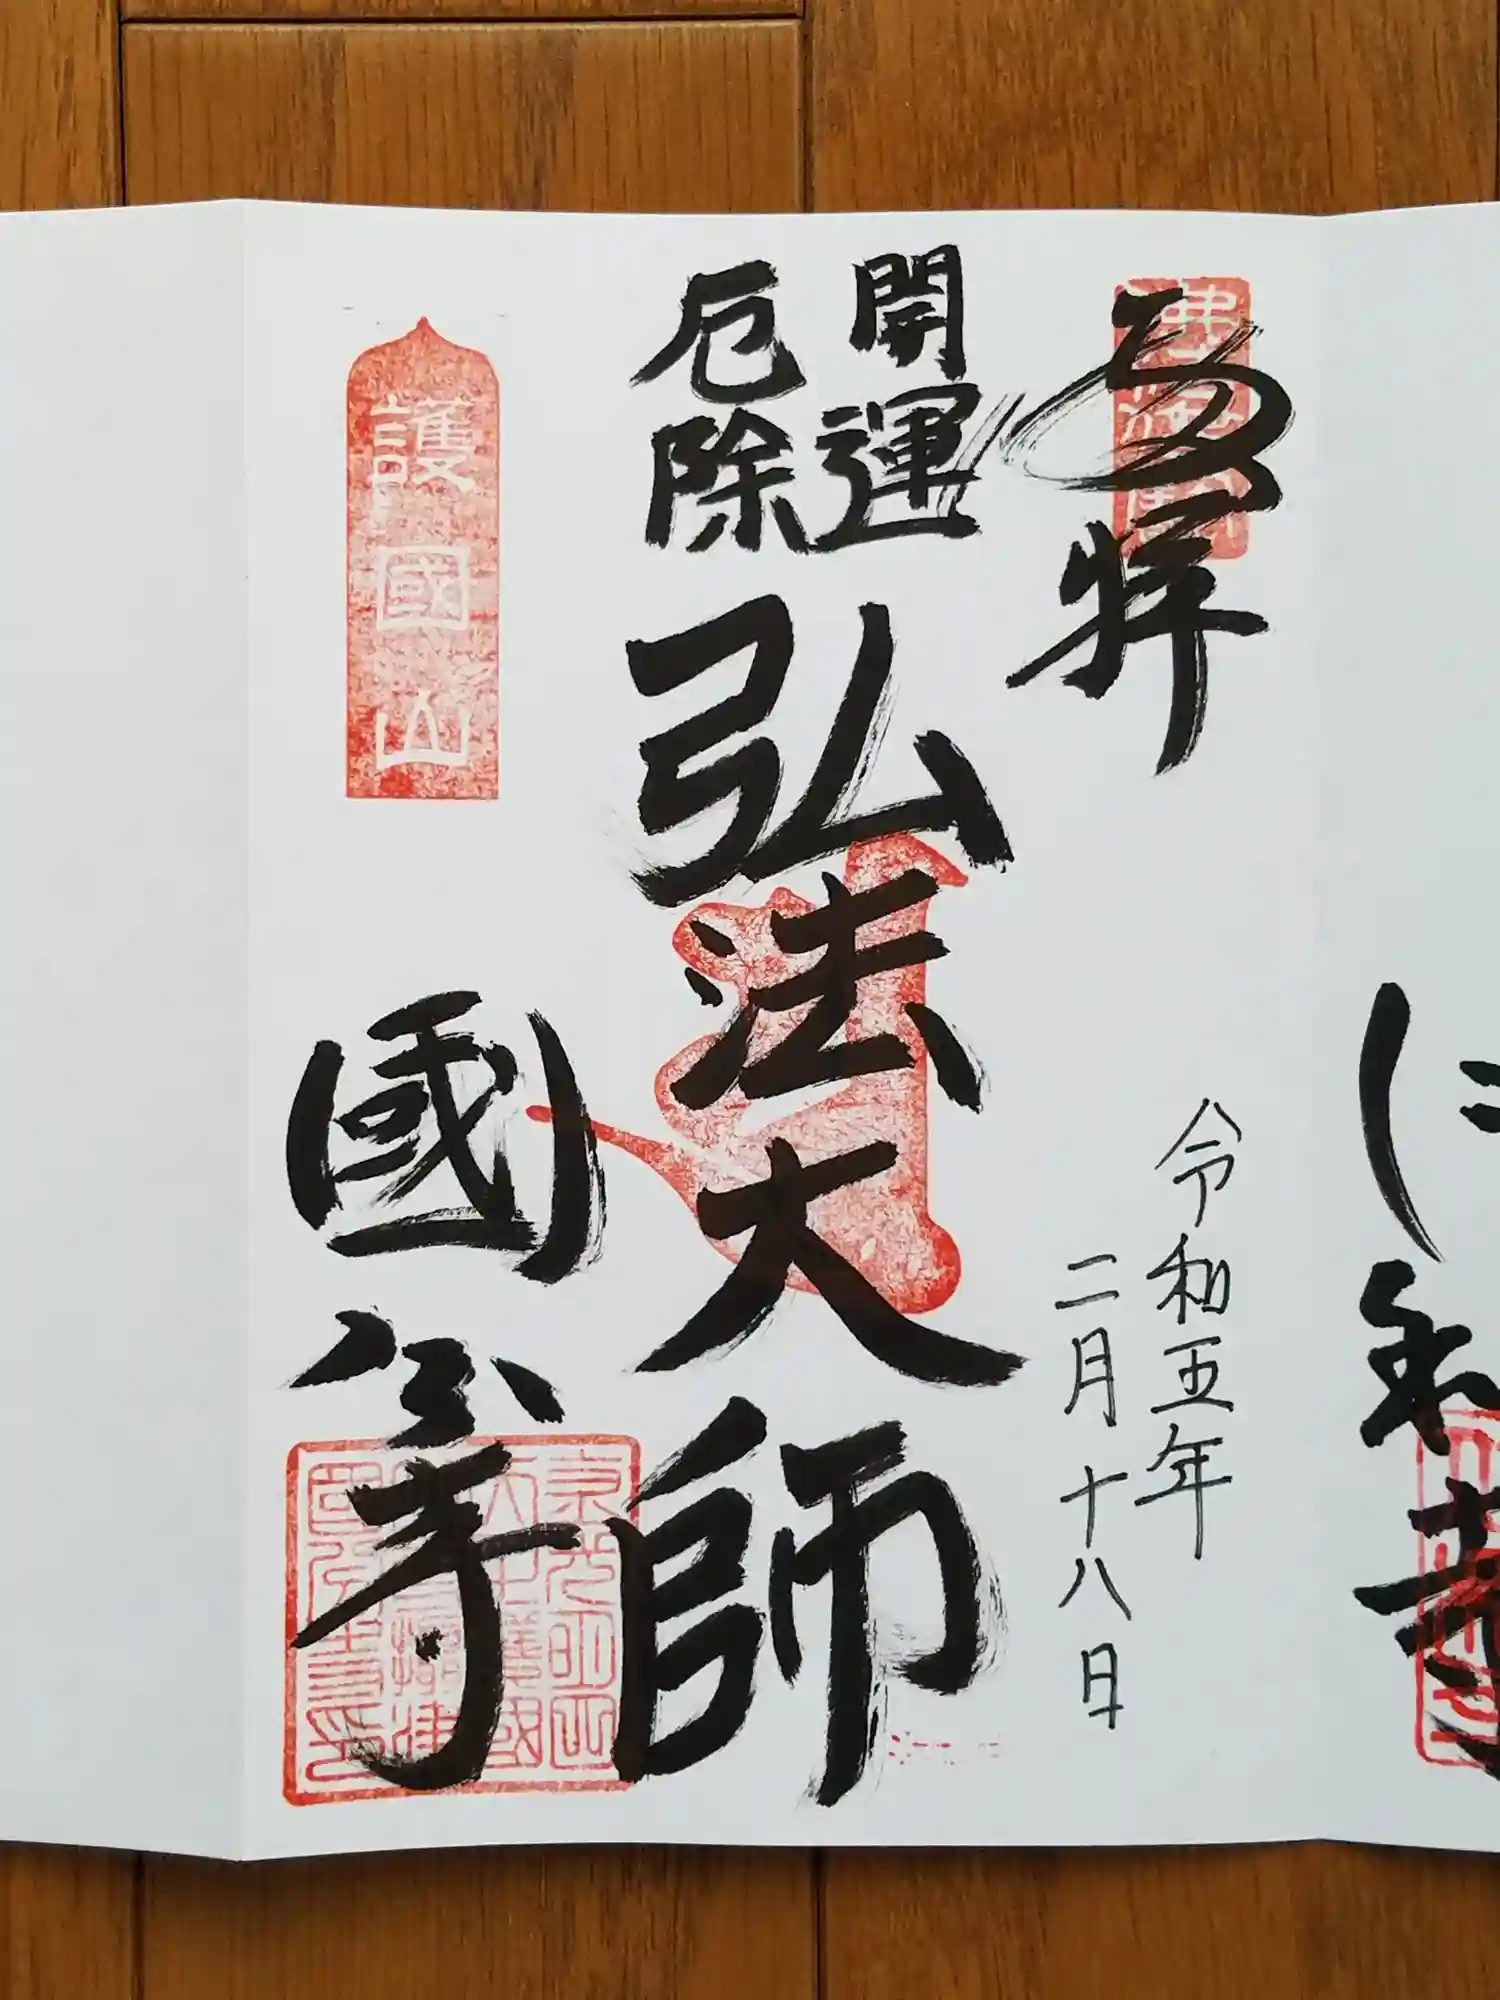 奉拝
令和五年
二月十八日
開運
厄除
弘法大師
護國山
國分寺